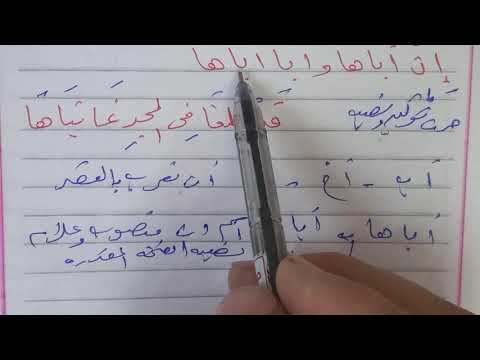 إن أباها وأبا أباها
قد بلغا في المجد غايتاها
حرف توكيد ونصب
أب - أخ - أن تعرب بالقصر
أباها أبا اسم إن منصوب وعلامة
نصبه الفتحة المقدرة